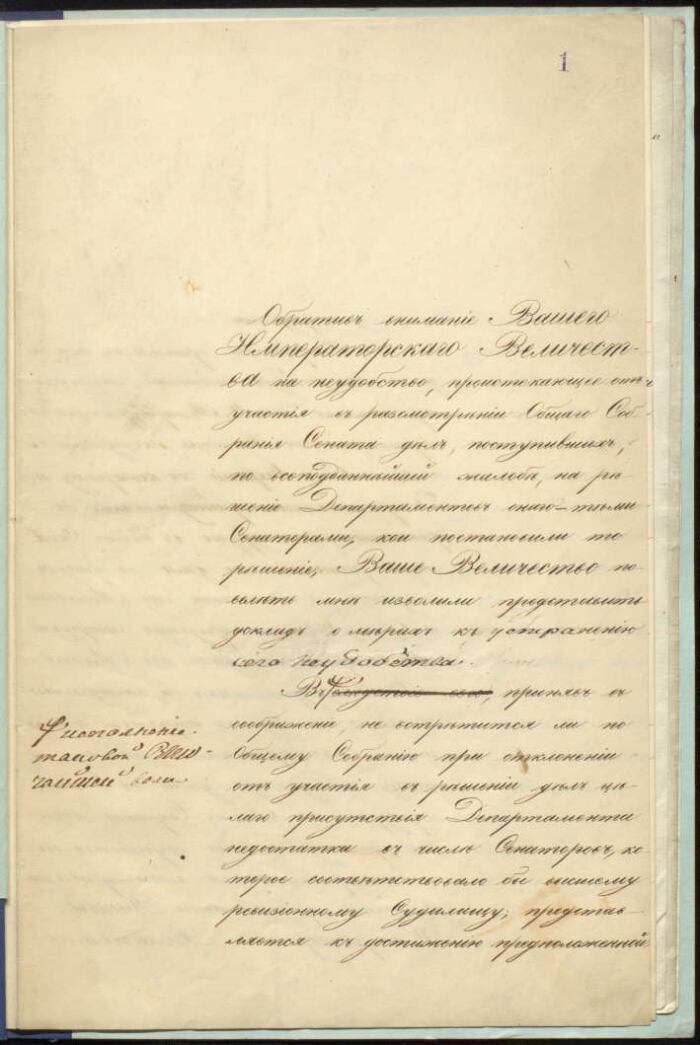 1
Обративъ вниманіе Вашего
Императорскаго Величест-
ва на неудобство, проистекающее отъ
участія въ разсмотрѣніи Общаго Соб-
ранія Сената дѣлъ, поступившихъ,
по всеподданнѣйшей жалобѣ, на рѣ-
шеніе Департаментовъ онаго – тѣми
Сенаторами, кои постановили то
рѣшеніе, Ваше Величество по-
велѣть мнѣ изволили представить
докладъ о мѣрахъ къ устраненію
сего неудобства.
Въ слѣдствіе сего, принявъ въ
соображеніе, не встрѣтится ли по
Общему Собранію при отклоненіи
отъ участія въ рѣшеніи дѣлъ цѣ-
лаго присутствія Департамента
недостатка въ числѣ Сенаторовъ, ко-
торое соотвѣтствовало бы высшему
ревизіонному Судилищу, представ-
ляется къ достиженію предположенной
исполненіе
таковой Высо-
чайшей воли